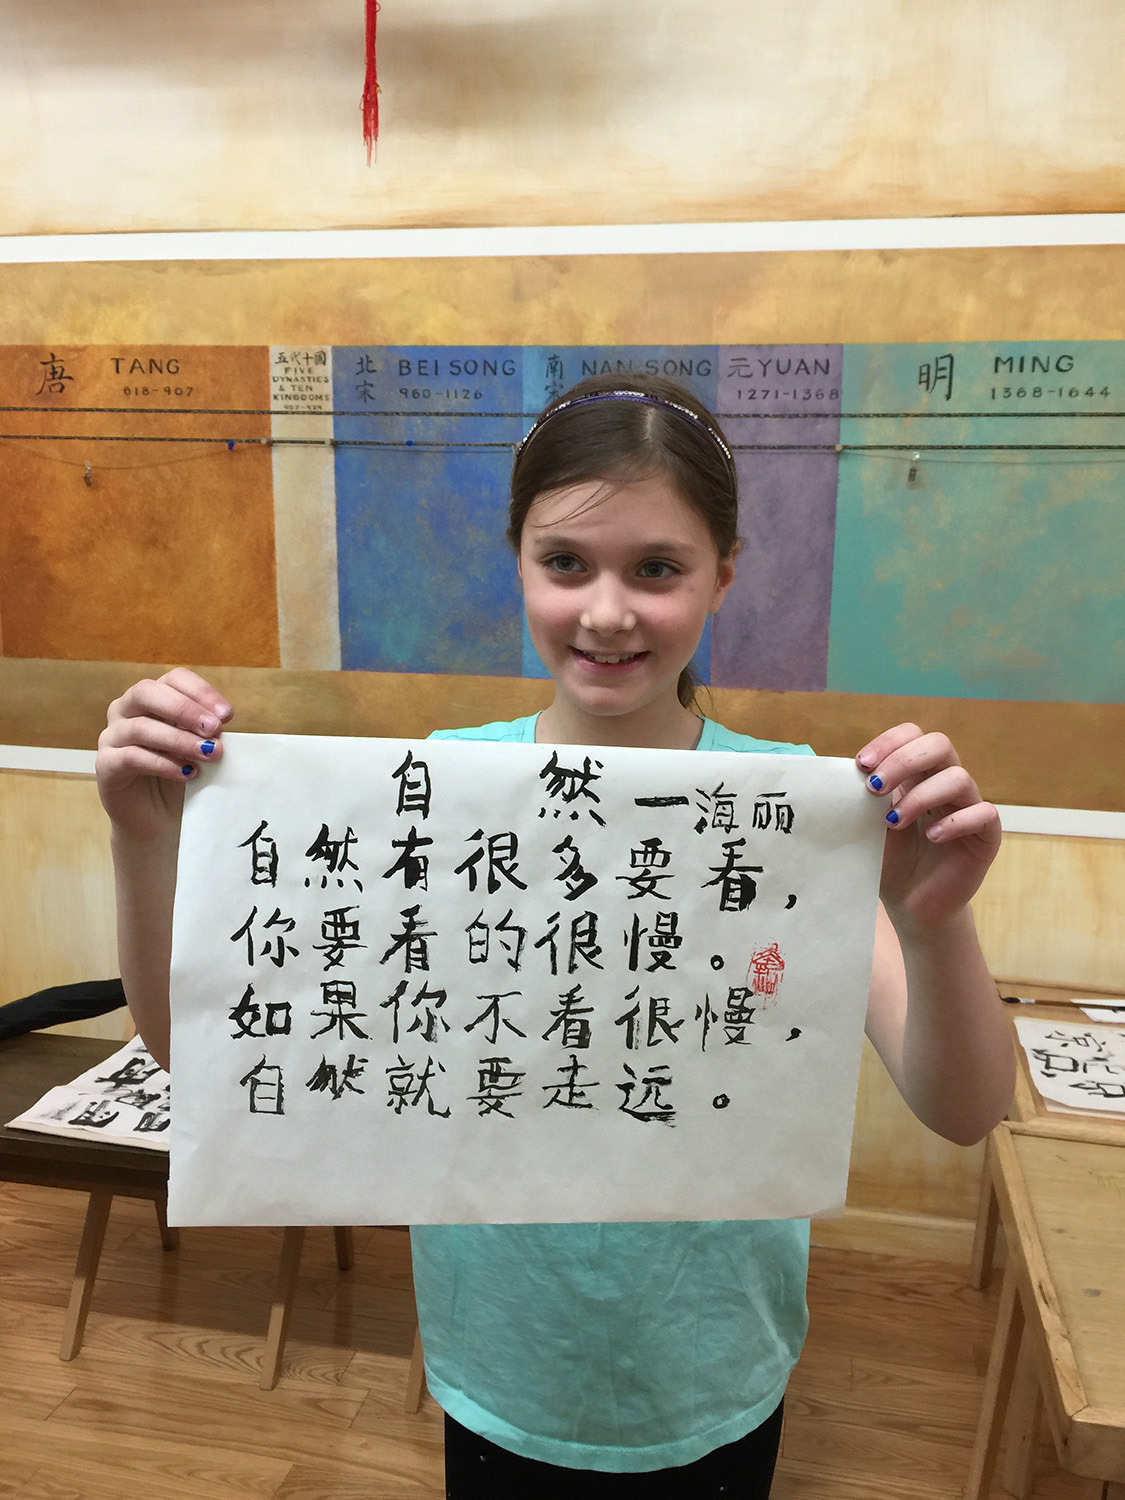 唐 TANG
618-907
五代十國
FIVE
DYNASTIES
& TEN
KINGDOMS
907-979
北宋 BEI SONG
960-1126
南宋 NAN SONG
元 YUAN
1271-1368
明 MING
1368-1644
自 然 一海丽
自然有很多要看，
你要看的很慢。
如果你不看很慢，
自然就要走远。